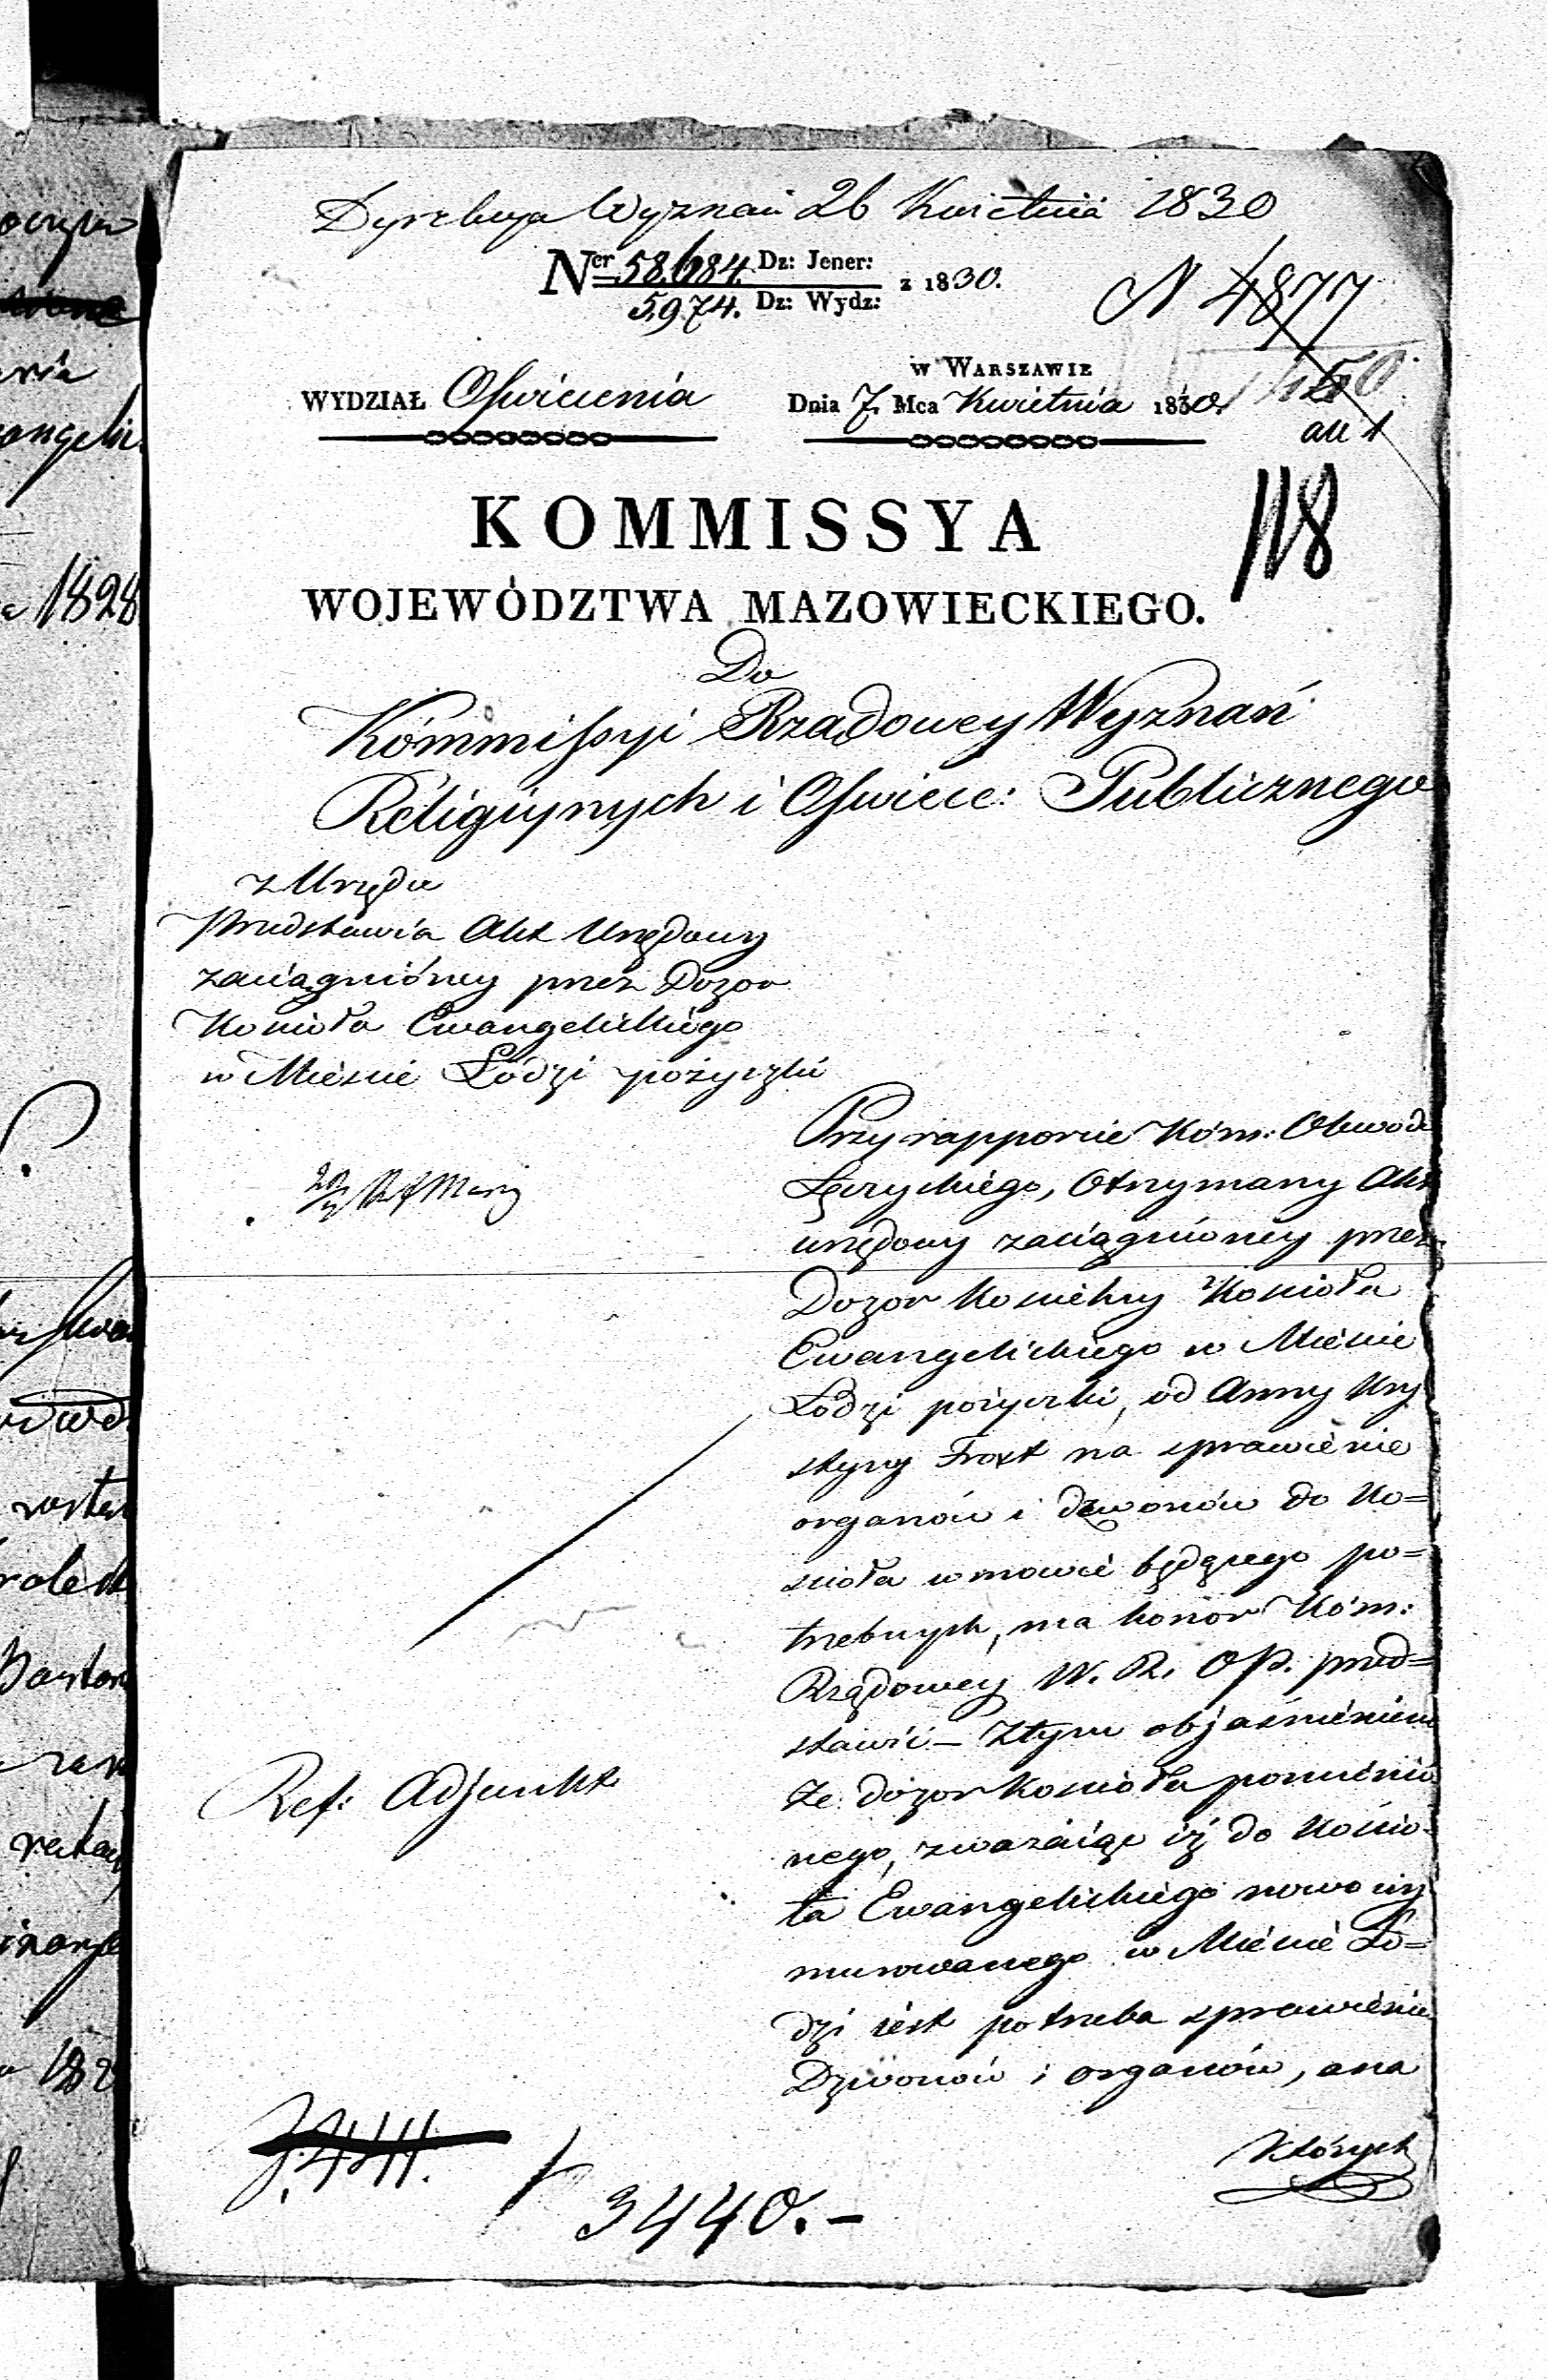 Dyrekcya Wyznań 26 Kwietnia 1830
Ner 58,684. Dz: Jener: z 1830.
5974. Dz: Wydz:
N 4877
w Warszawie
WYDZIAŁ Oświecenia
Dnia 7. Mca Kwietnia 1830.
118
KOMMISSYA
WOJEWÓDZTWA MAZOWIECKIEGO.
Do
Kommissyi Rządowey Wyznań
Religiynych i Oświece: Publicznego
z Urzędu
Przedstawia Akt Urzędowy
zaciągnióney przez Dozor
Kościoła Ewangelickiego
w Mieście Łódzi pożyczki
Przy rapporcie Kom: Obwodu
Łęczyckiego, Otrzymany Akt
urzędowy zaciągnióney przez
Dozor Kościelny Kościoła
Ewangelickiego w Mieście
Łodzi pożyczki, od Anny Kry
styny Frost na sprawienie
organów i dzwonów do Ko=
ścioła w mowie będącego po=
trzebnych, ma honor Kom:
Rządowey W. R. O P. przed=
stawić – z tym objaśnieniem
że dozor Kościoła pomienio
nego, zważaiąc iż do Kościo=
ła Ewangelickiego nowo wy
murowanego w Mieście Ło=
dzi iest potrzeba sprawienia
Dzwonów i organów, a na
których
Ref: Adjunkt
3440.–